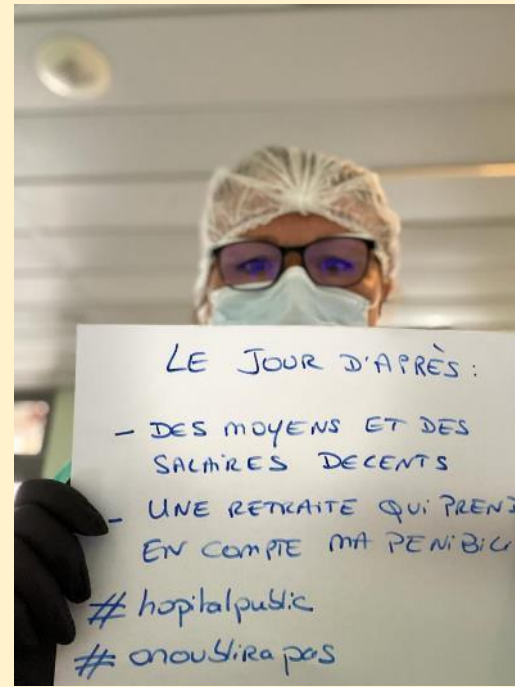 LE JOUR D'APRÈS :
- DES MOYENS ET DES
SALAIRES DECENTS
- UNE RETRAITE QUI PREND
EN COMPTE MA PENIBILI
# hopitalpublic
# onoublirapas